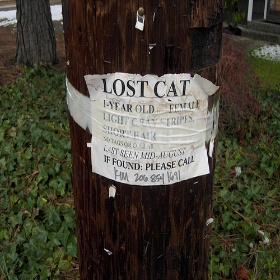 LOST CAT
1-YEAR OLD FEMALE
LIGHT GRAY STRIPES
SHORT HAIR
LAST SEEN MID-AUGUST
IF FOUND: PLEASE CALL
KIM 206 854 1691